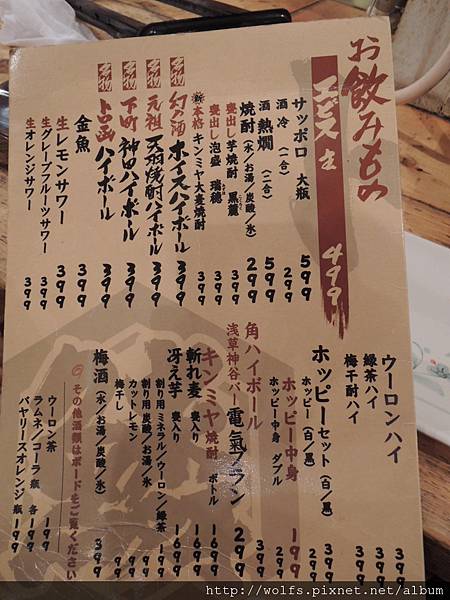 お飲みもの
エビス 生 499
サッポロ 大瓶 599
酒 冷 (一合) 299
酒 熱燗 (二合) 599
焼酎 (水/お湯/炭酸/氷) 299
甕出し 芋焼酎 黒麓 399
甕出し 泡盛 瑞穂 399
本格 キンミヤ大麦焼酎 399
名物 幻の酒 ホイスハイボール 399
名物 元祖 天羽焼酎ハイボール 399
名物 下町 神田ハイボール 399
名物 ハイボール 399
金魚 399
生レモンサワー 399
生グレープフルーツサワー 399
生オレンジサワー 399
ウーロンハイ 399
緑茶ハイ 399
梅干酎ハイ 399
ホッピーセット (白/黒) 399
ホッピー (白/黒) 299
ホッピー中身 199
ホッピー中身 ダブル 399
角ハイボール 399
浅草神谷バー 電氣ブラン 299
キンミヤ焼酎 ボトル 1699
斬れ麦 甕入り 1699
冴え芋 甕入り 1699
割り用ミネラル/ウーロン/緑茶
割り用炭酸/お湯/氷
カットレモン
梅干し
梅酒 (水/お湯/炭酸/氷) 399
◎その他酒類はボードをご覧ください
ウーロン茶 199
ラムネ/コーラ 瓶 各199
バヤリースオレンジ 瓶 199
http://wolfs.pixnet.net/album